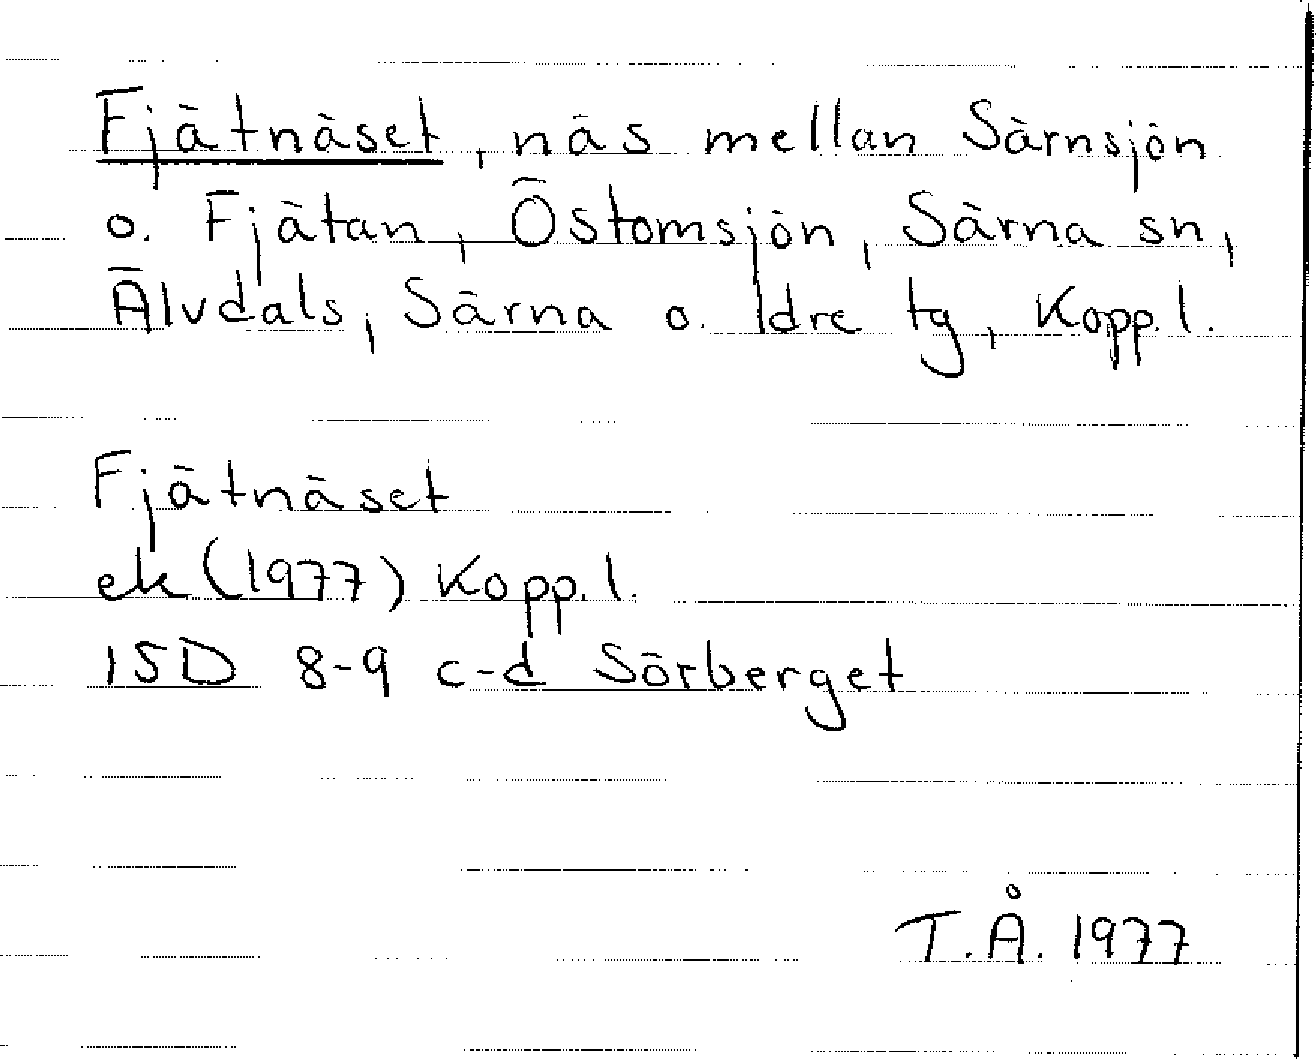 Fjätnäset, näs mellan Särnsjön
o. Fjätan, Östomsjön, Särna sn,
Älvdals, Särna o. Idre tg, Kopp.l.
Fjätnäset
ek (1977) Kopp.l.
15D 8-9 c-d Sörberget
T.Å. 1977